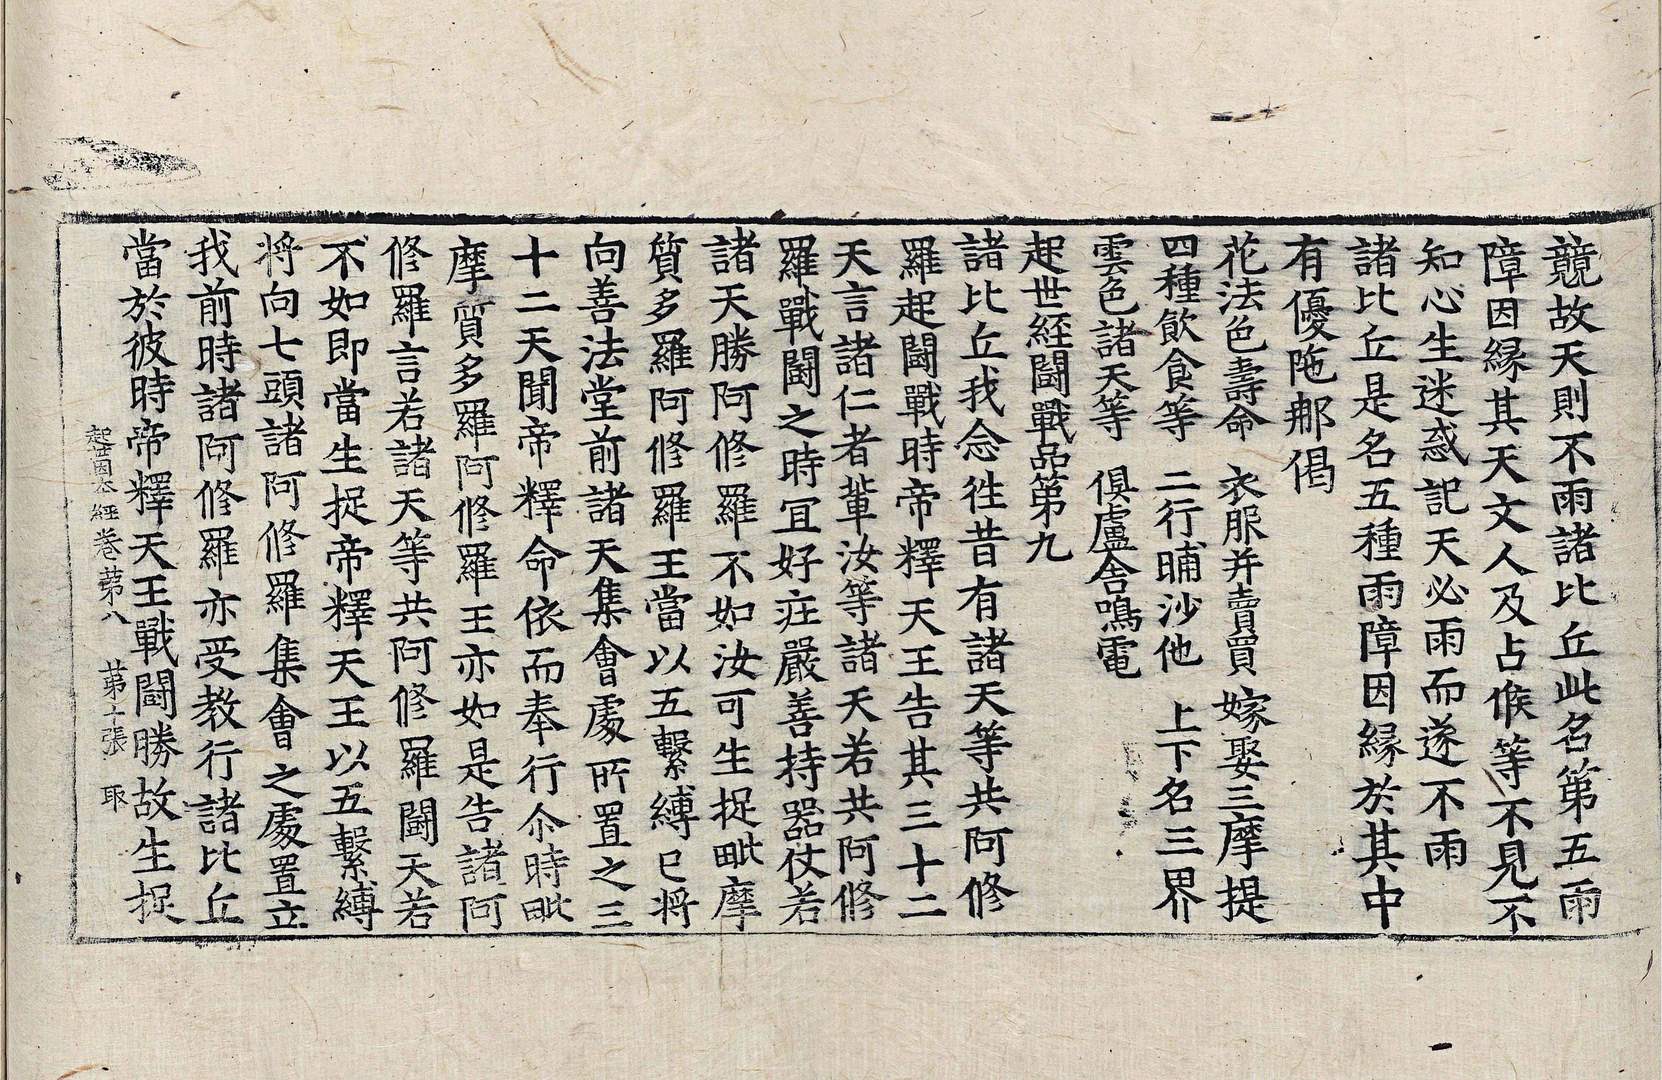 競故天則不雨諸比丘此名第五雨
障因縁其天文人及占候等不見不
知心生迷惑記天必雨而遂不雨
諸比丘是名五種雨障因縁於其中
有優陁那偈
花法色壽命 衣服并賣買 嫁娶三摩提
四種飲食等 二行晡沙他 上下名三界
雲色諸天等 俱盧舍鳴電
起世経鬪戰品第九
諸比丘我念徃昔有諸天等共阿修
羅起鬪戰時帝釋天王告其三十二
天言諸仁者軰汝等諸天若共阿修
羅戰鬪之時宜好莊嚴善持器仗若
諸天勝阿修羅不如汝可生捉毗摩
質多羅阿修羅王當以五繫縛已將
向善法堂前諸天集會處所置之三
十二天聞帝釋命依而奉行尒時毗
摩質多羅阿修羅王亦如是告諸阿
修羅言若諸天等共阿修羅鬪天若
不如即當生捉帝釋天王以五繫縛
将向七頭諸阿修羅集會之處置立
我前時諸阿修羅亦受教行諸比丘
當於彼時帝釋天王戰鬪勝故生捉
起世因本経卷第八 第十張 取